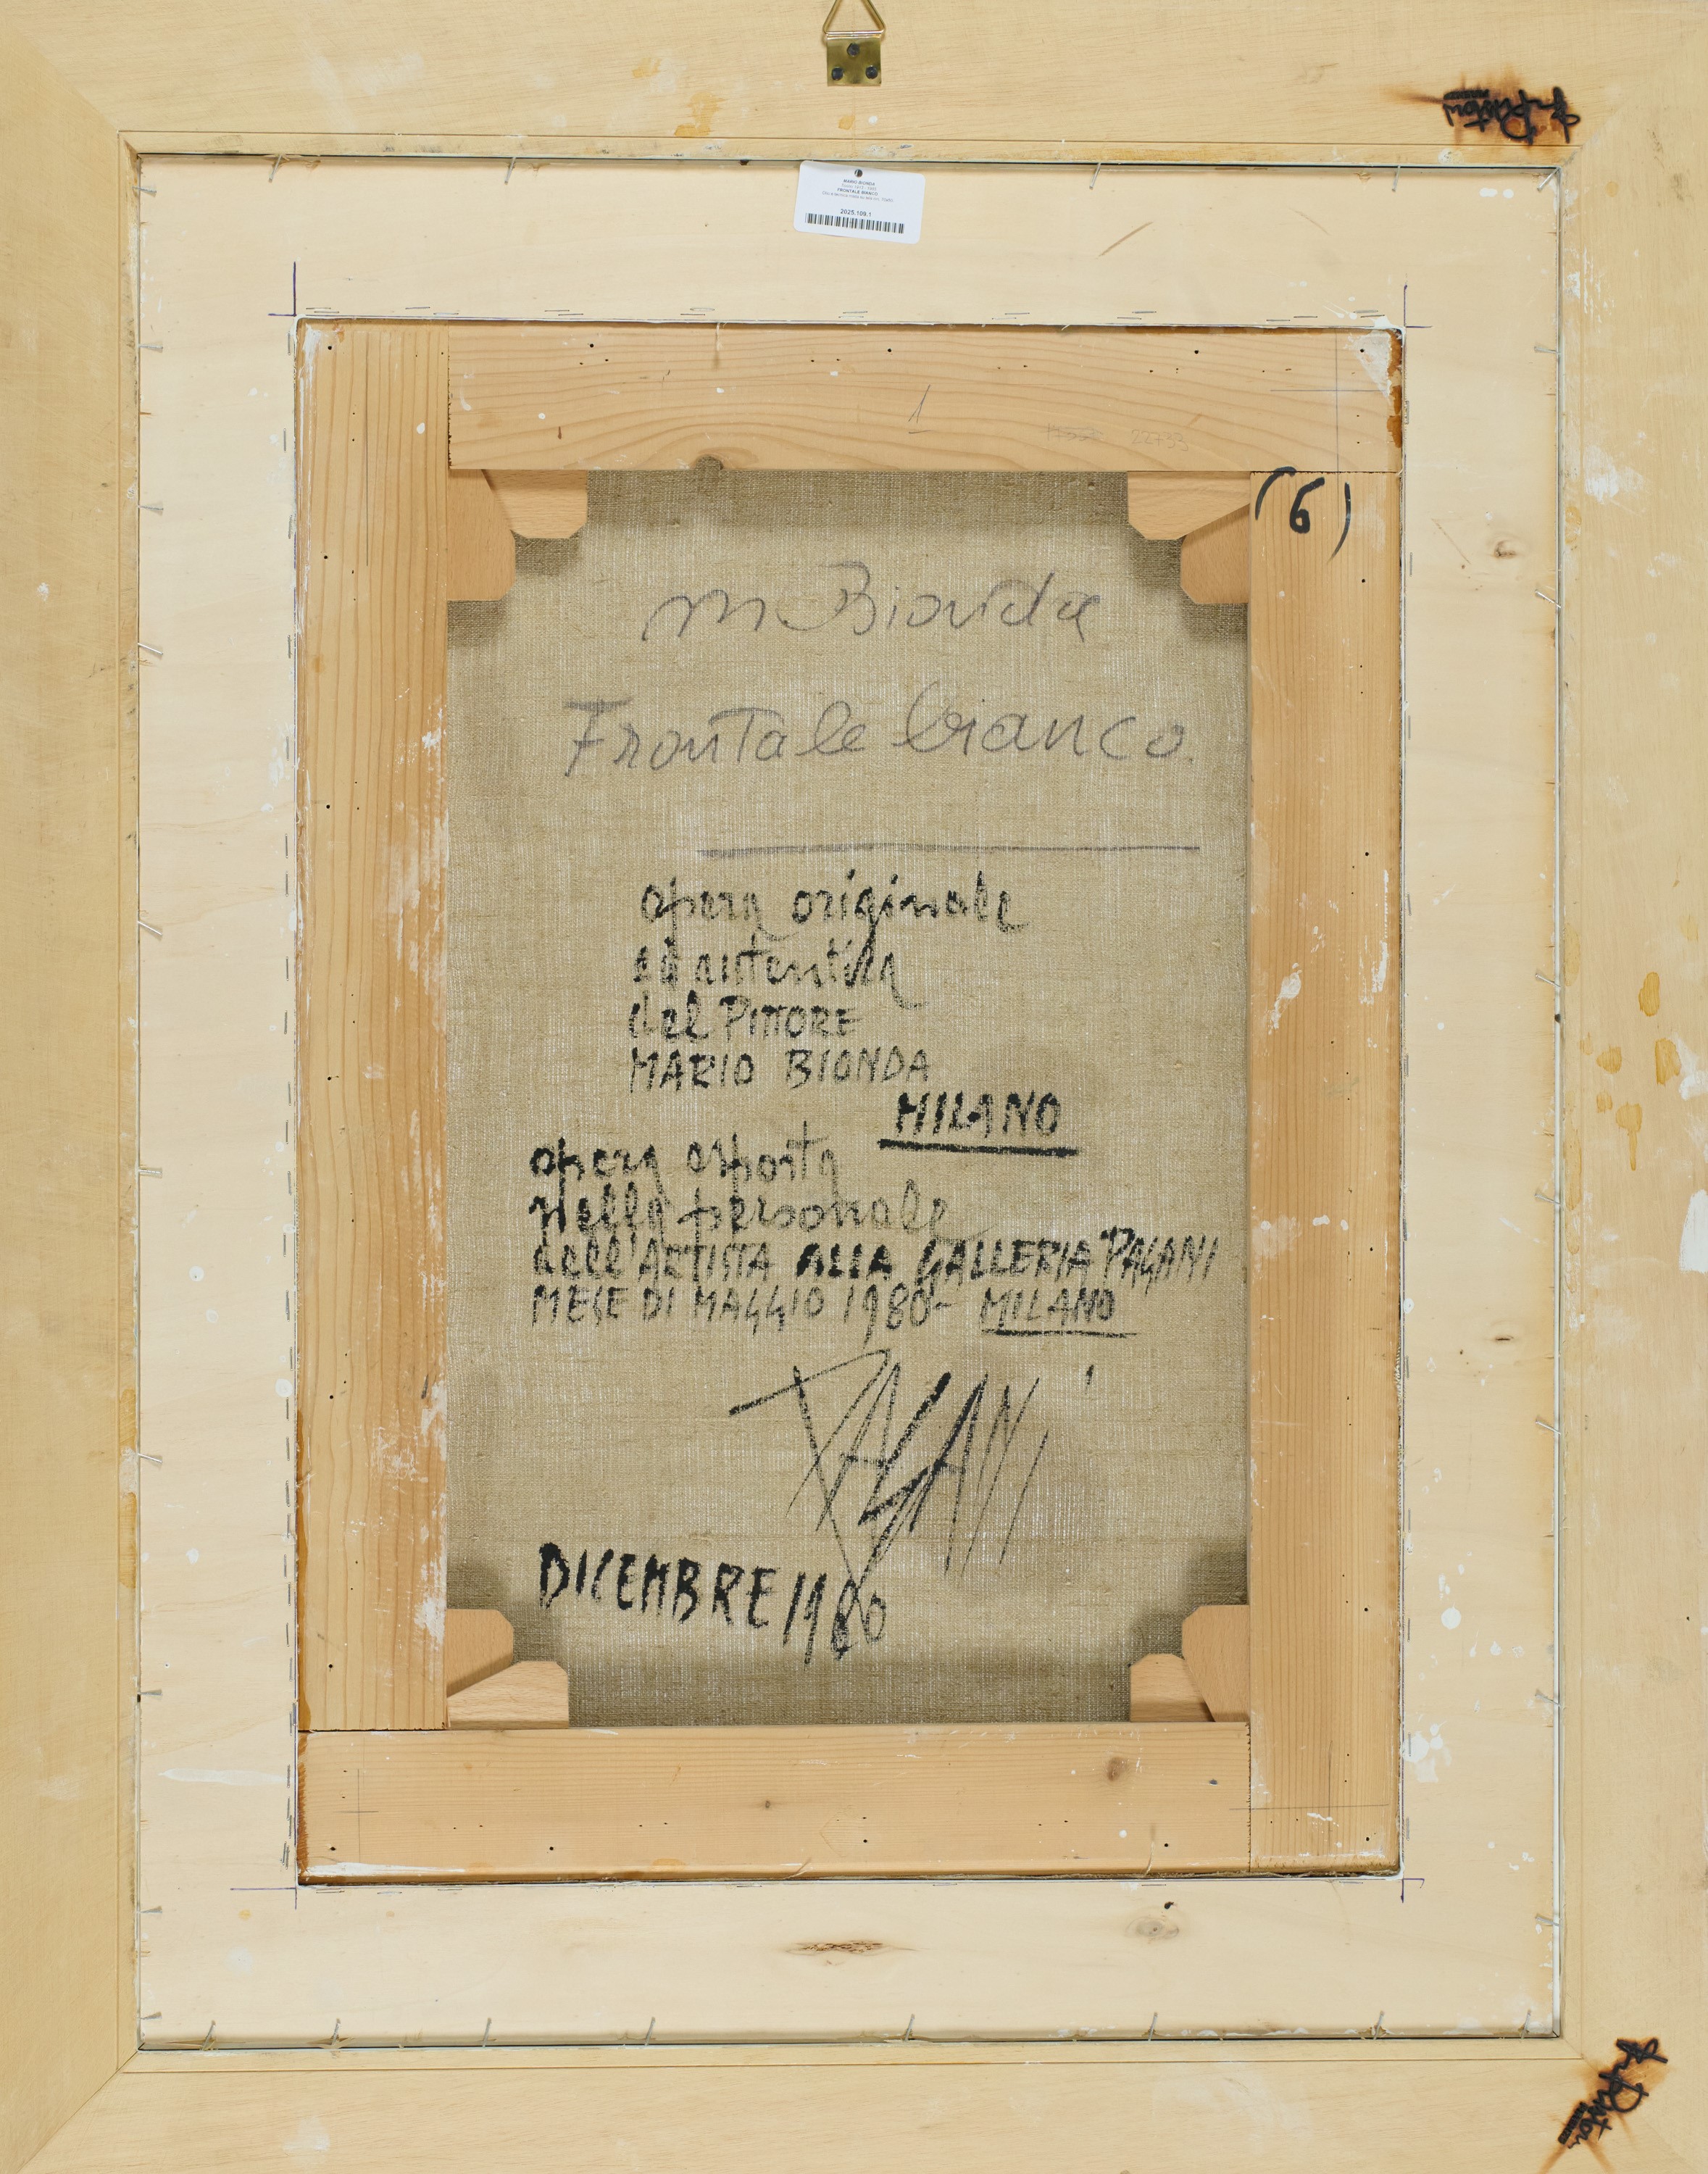 MARIO BIONDA
FRONTALE BIANCO
2025.109.1
1
22733
(6)
M Bionda
Frontale bianco.
opera originale
ed autentica
del PITTORE
MARIO BIONDA
MILANO
opera esposta
nella personale
dell'ARTISTA ALLA GALLERIA PAGANI
MESE DI MAGGIO 1980- MILANO
PAGANI
DICEMBRE 1980